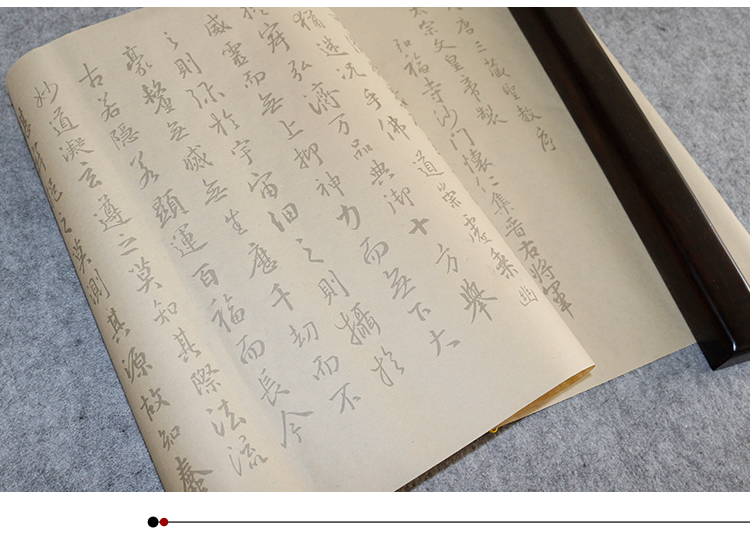 唐三藏聖教序
太宗文皇帝製
弘福寺沙门懷仁集晋右將軍
猶迷况乎佛道崇虛乘幽
控寂弘濟万品典御十方舉
威靈而無上抑神力而無下大
之則弥於宇宙細之則攝於
豪釐無滅無生歷千劫而不
古若隱若顯運百福而長今
妙道凝玄遵之莫知其際法流
湛寂挹之莫測其源故知蠢